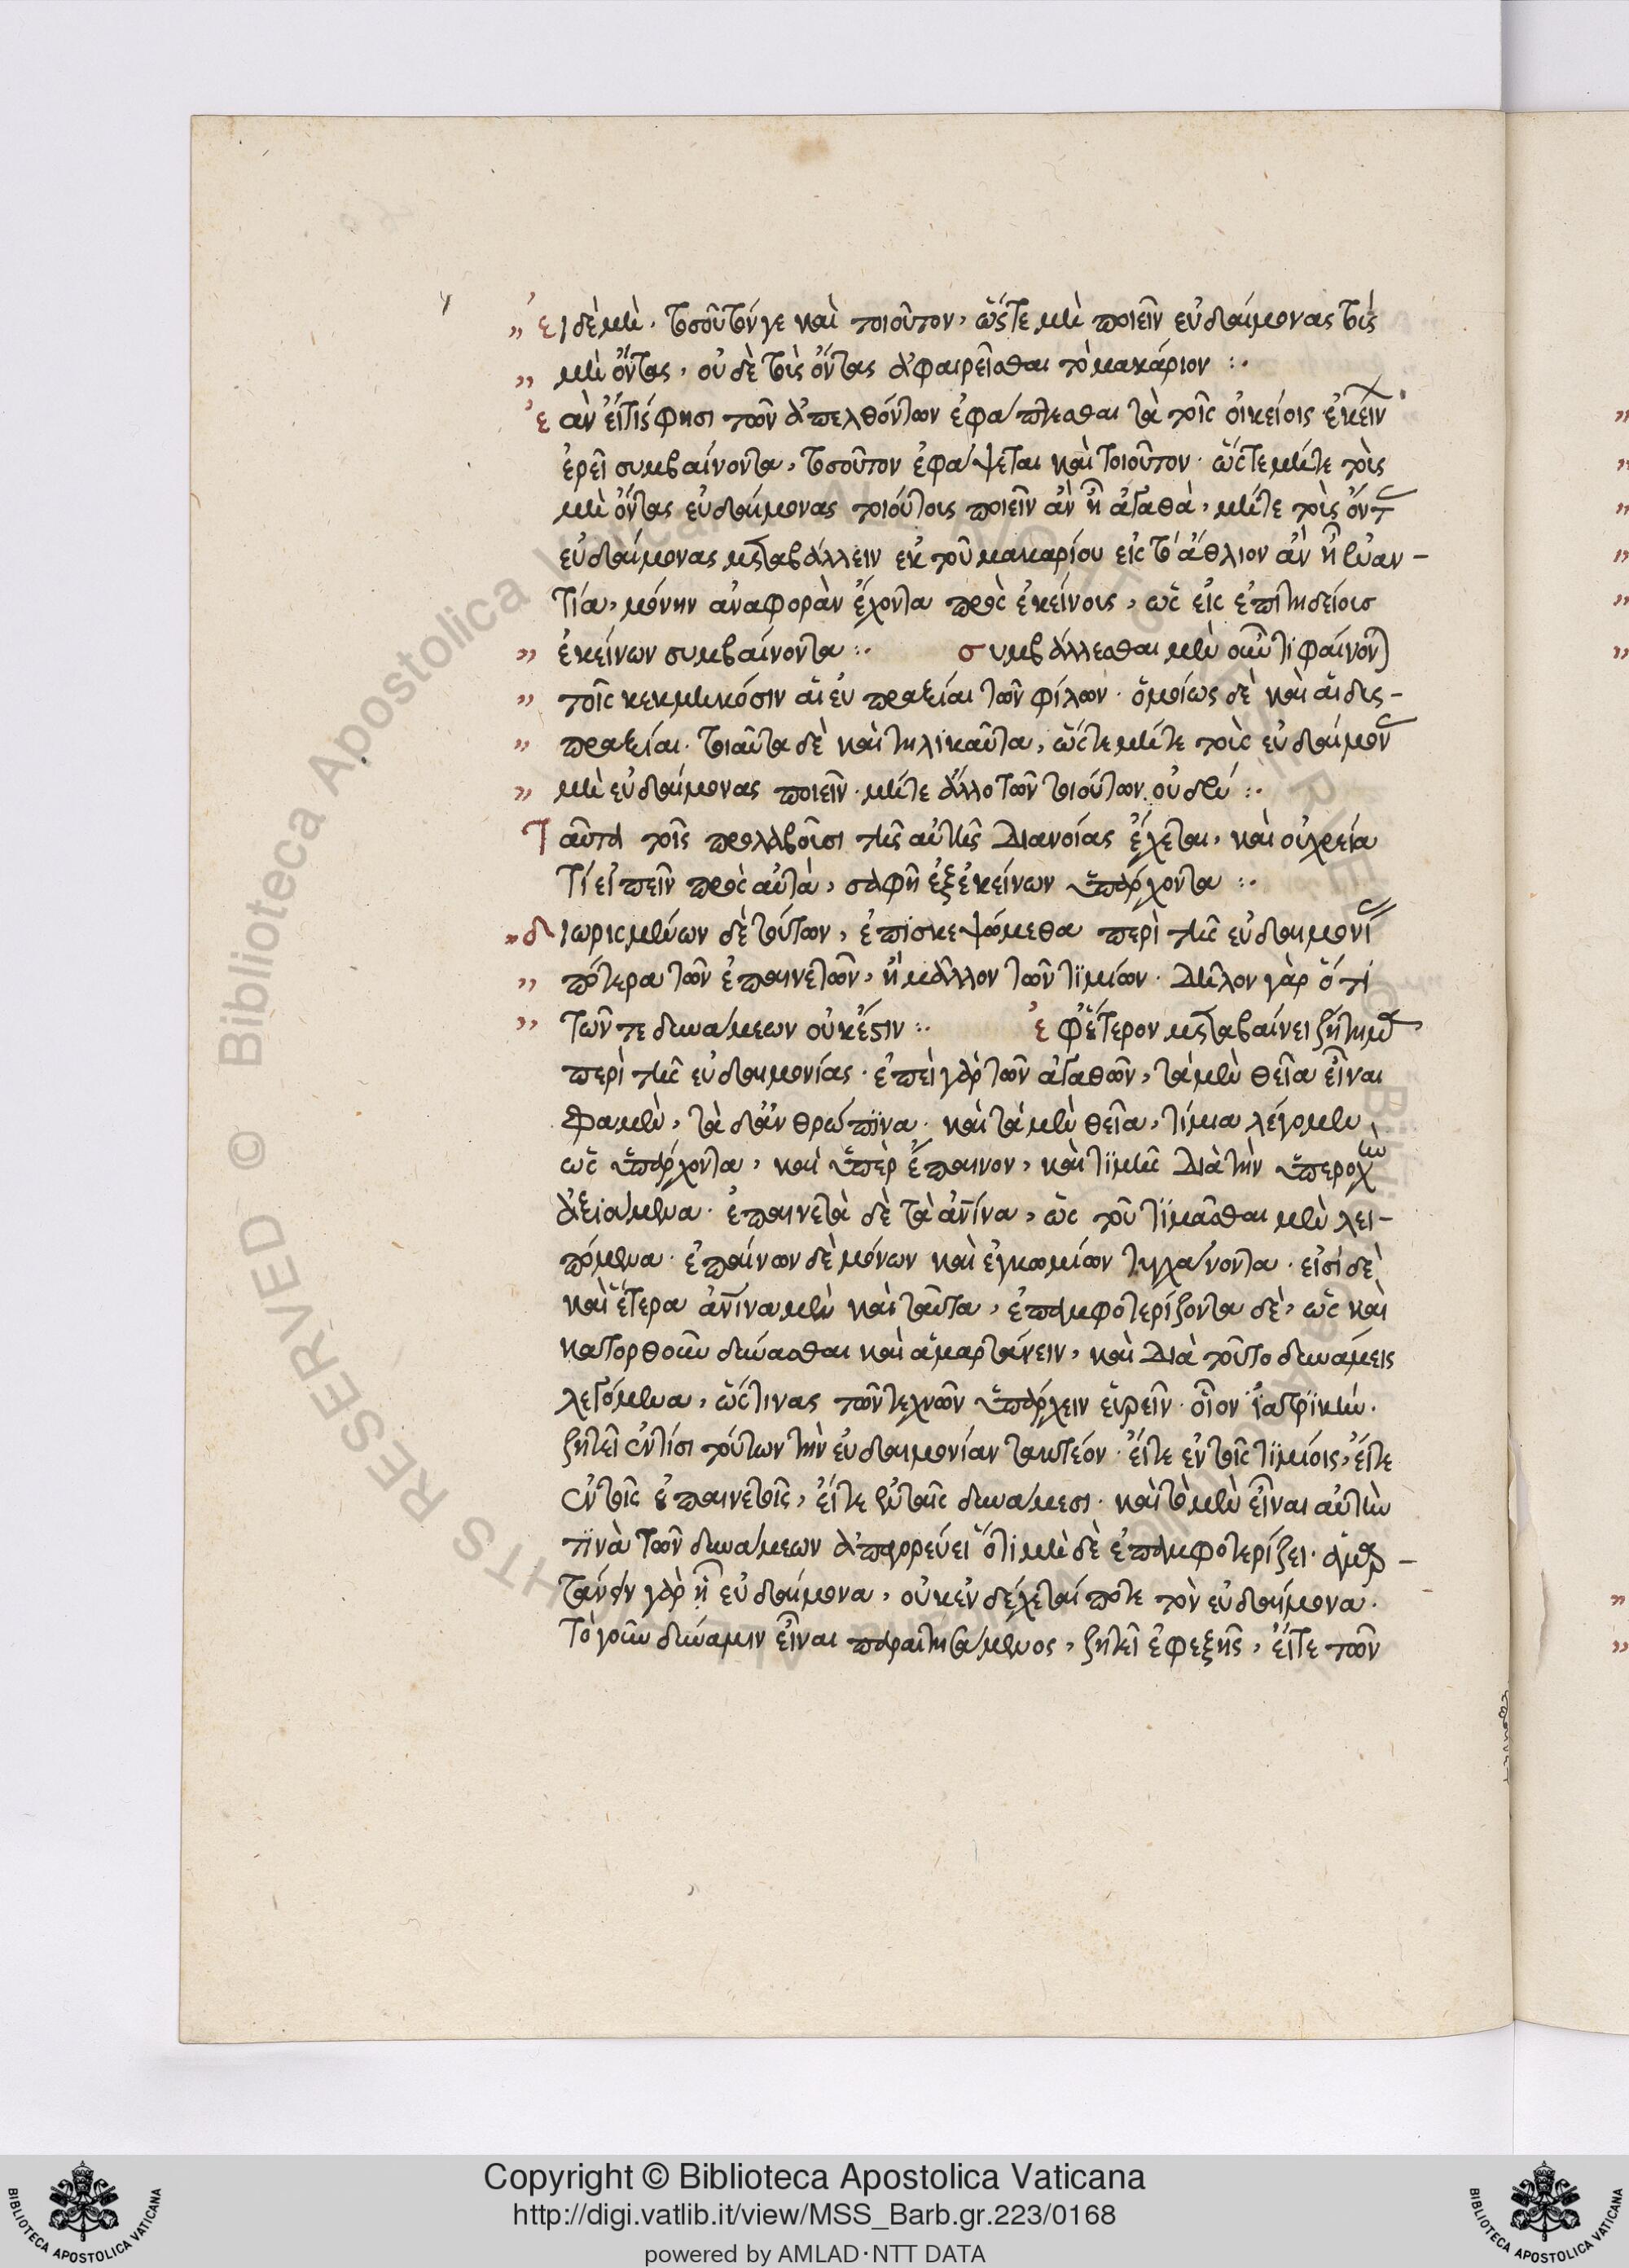 εἰ δὲ μὴ, τοσοῦτόν γε καὶ τοιοῦτον, ὥστε μὴ ποιεῖν εὐδαίμονας τοὺς
μὴ ὄντας, οὐδὲ τοὺς ὄντας ἀφαιρεῖσθαι τὸ μακάριον :.
ἐὰν εἴ τίς φησι τῶν ἀπελθόντων ἐφάπτεσθαι τὰ τοῖς οἰκείοις
ἐρεῖ συμβαίνοντα, τοσοῦτον ἐφάψεται καὶ τοιοῦτον. ὥστε μήτε τοὺς
μὴ ὄντας εὐδαίμονας τοιούτους ποιεῖν ἂν ἢ ἀγαθὰ, μήτε τοὺς ὄντας
εὐδαίμονας μεταβάλλειν ἐκ τοῦ μακαρίου εἰς τὸ ἄθλιον ἂν ἢ ἐναν-
τία, μόνην ἀναφορὰν ἔχοντα πρὸς ἐκείνοις, ὡς εἰς ἐπιτηδείοις
ἐκείνων συμβαίνοντα :. συμβάλλεσθαι μὲν οὖν τι φαίνονται
τοῖς κεκμηκόσιν αἱ εὐπραξίαι τῶν φίλων. ὁμοίως δὲ καὶ αἱ δυς-
πραξίαι. τοιαῦτα δὲ καὶ τηλικαῦτα, ὥστε μήτε τοὺς εὐδαίμονας
μὴ εὐδαίμονας ποιεῖν. μήτε ἄλλο τῶν τοιούτων οὐδέν :.
Ταῦτα τοῖς προλαβοῦσι τῆς αὐτῆς διανοίας ἔχεται, καὶ οὐ χρεία
τί εἰπεῖν πρὸς αὐτὰ, σαφῆ ἐξ ἐκείνων ὑπάρχοντα :.
διωρισμένων δὲ τούτων, ἐπισκεψώμεθα περὶ τῆς εὐδαιμονίας
πότερα τῶν ἐπαινετῶν, ἢ μᾶλλον τῶν τιμίων. δῆλον γὰρ ὅτι
τῶν τε δυνάμεων οὐκ ἔστιν :. ἐφ' ἕτερον μεταβαίνει ζήτημα
περὶ τῆς εὐδαιμονίας. ἐπεὶ γὰρ τῶν ἀγαθῶν, τὰ μὲν θεῖα εἶναι
φαμὲν, τὰ δ' ἀνθρώπινα. καὶ τὰ μὲν θεῖα, τίμια λέγομεν
ὡς ὑπάρχοντα, καὶ ὑπὲρ ἔπαινον, καὶ τιμῆς διὰ τὴν ὑπεροχὴν
ἀξιάμενα. ἐπαινετὰ δὲ τὰ ἀνινα, ὡς τοῦ τιμᾶσθαι μὲν λει-
πόμενα. ἐπαίνων δὲ μόνων καὶ ἐγκωμίων τυγχάνοντα. εἰσὶ δὲ
καὶ ἕτερα ἀνινα μὲν καὶ ταῦτα, ἐπαμφοτερίζοντα δὲ, ὡς καὶ
κατορθοῦν δύνασθαι καὶ ἁμαρτάνειν, καὶ διὰ τοῦτο δυνάμεις
λεγόμενα, ὥς τινας τῶν τεχνῶν ὑπάρχειν εὑρεῖν. οἷον ἰατρικήν.
ζητεῖ ἐν τίσι τούτων τὴν εὐδαιμονίαν τακτέον. εἴτε ἐν τοῖς τιμίοις, εἴτε
ἐν τοῖς ἐπαινετοῖς, εἴτε ἐν ταῖς δυνάμεσι. καὶ τὸ μὲν εἶναι αὐτὴν
τινὰ τῶν δυνάμεων ἀπαγορεύει ὅτι μὴ δὲ ἐπαμφοτερίζει. ἁμαρ-
τάνειν γὰρ ἢ εὐδαίμονα, οὐκ ἐνδέχεταί ποτε τὸν εὐδαίμονα.
Τὸ γοῦν δύναμιν εἶναι παραιτησάμενος, ζητεῖ ἐφεξῆς, εἴτε τῶν
Copyright © Biblioteca Apostolica Vaticana
http://digi.vatlib.it/view/MSS_Barb.gr.223/0168
powered by AMLAD·NTT DATA